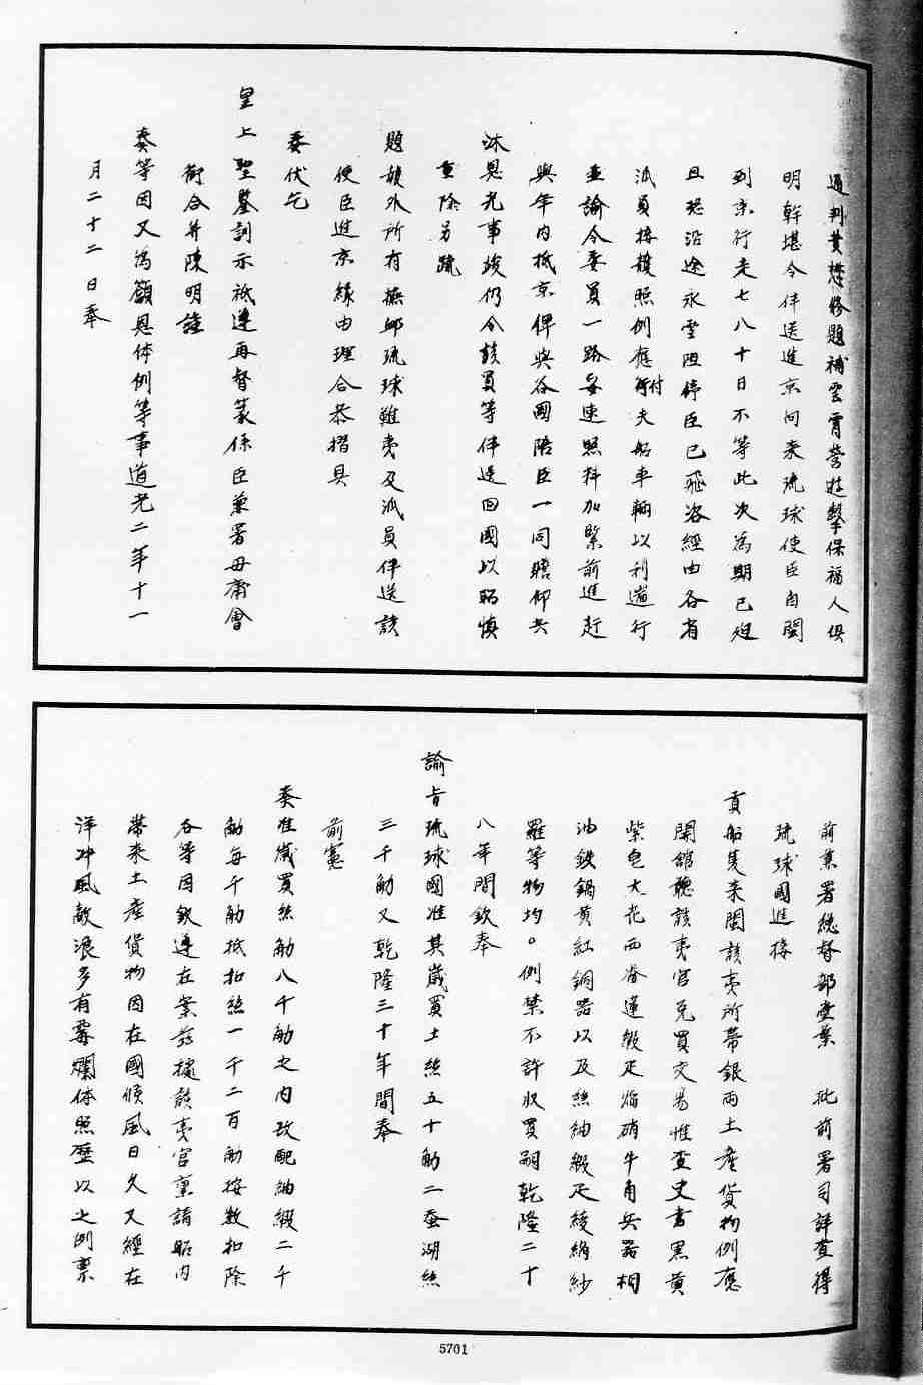 通判黃懋修題補雲霄營遊擊保福人俱
明幹堪令伴送進京向來琉球使臣自閩
到京行走七八十日不等此次為期已迫
且恐沿途冰雪阻停臣已飛咨經由各省
派員接護照例應付夫船車輛以利遄行
並諭令委員一路妥速照料加緊前進趕
與年內抵京俾與各國陪臣一同瞻仰共
沐恩光事竣仍令該員等伴送回國以昭慎
重除另疏
題報外所有撫卹琉球難夷及派員伴送該
使臣進京緣由理合恭摺具
奏伏乞
皇上聖鑒訓示祗遵再督篆係臣兼署毋庸會
銜合并陳明謹
奏等因又為籲恩体例等事道光二年十一
月二十二日奉
前兼署總督部堂葉 批前署司詳查得
琉球國進接
貢船隻來閩該夷所帶銀兩土產貨物例應
開館聽該夷官兌買交易惟查史書黑黃
紫皂大花西番蓮緞疋焰硝牛角兵器桐
油鉄鍋黃紅銅器以及絲紬緞疋綾絹紗
羅等物均。例禁不許收買嗣乾隆二十
八年間欽奉
諭旨琉球國准其歲買土絲五千觔二蚕湖絲
三千觔又乾隆三十年間奉
前憲
奏准歲買絲觔八千觔之內改配紬緞二千
觔每千觔抵扣絲一千二百觔按数扣除
各等因欽遵在案茲據該夷官稟請船內
帶來土產貨物因在國候風日久又經在
洋冲風敵浪多有霉爛体照歷以之例稟
5701